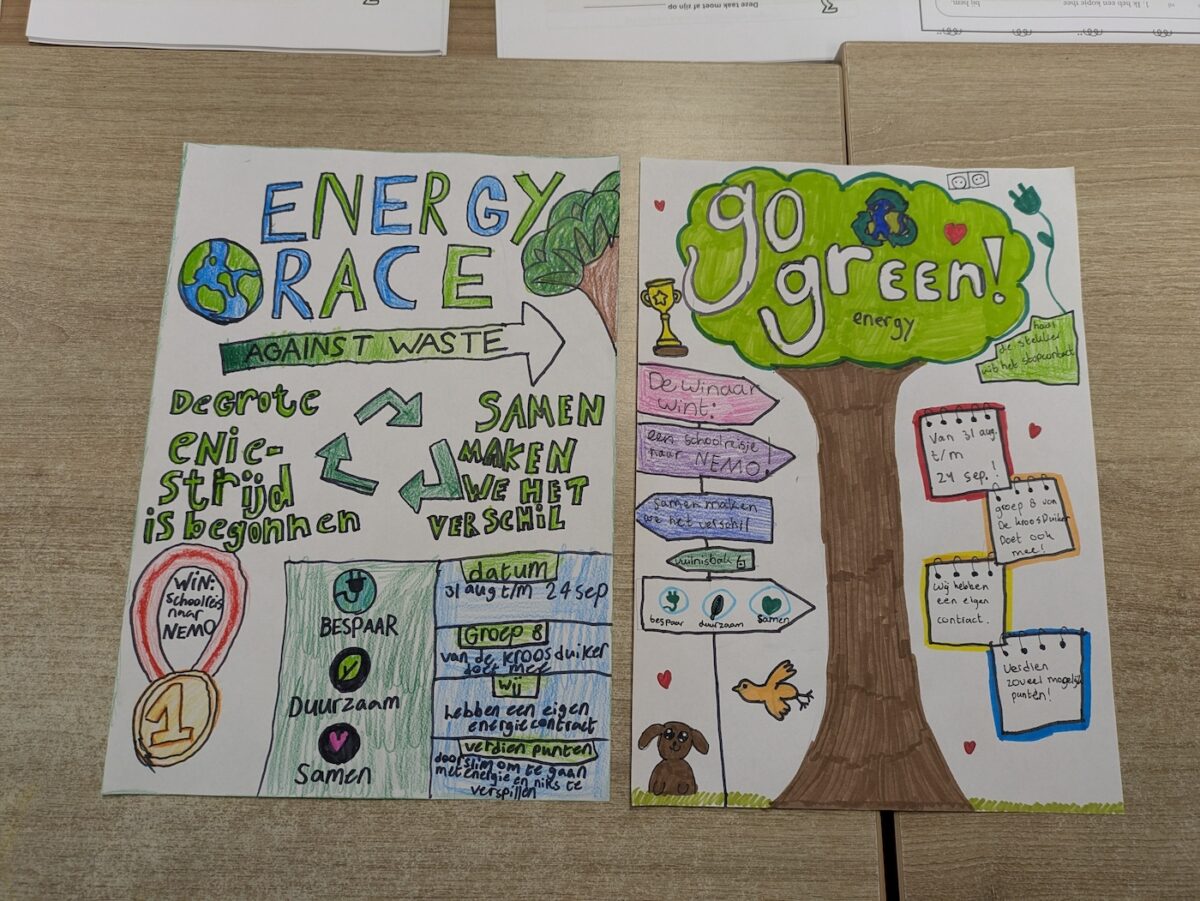 Deze taak moet af zijn op
1. Ik heb een kopje thee
bij hem.
ENERGY
RACE
AGAINST WASTE
De Grote
eNie-
strijd
is begonnen
SAMEN
MAKEN
WE HET
VERSCHIL
WIN:
Schoolreis
naar
NEMO
1
BESPAAR
Duurzaam
Samen
datum
31 aug t/m 24 sep
Groep 8
van de kroosduiker
doet mee
wij
hebben een eigen
energiecontract
verdien punten
door slim om te gaan
met energie en niks te
verspillen
go
green!
energy
haal
de stekker
uit het stopcontact
De winaar
wint:
een schoolreisje
naar NEMO!
samen maken
we het verschil
vuilnisbak
bespaar duurzaam Samen
Van 31 aug.
t/m
24 sep.!
groep 8 van
De kroosDuiker
Doet ook
mee!
Wij hebben
een eigen
contract.
Verdien
zoveel mogelijk
punten!